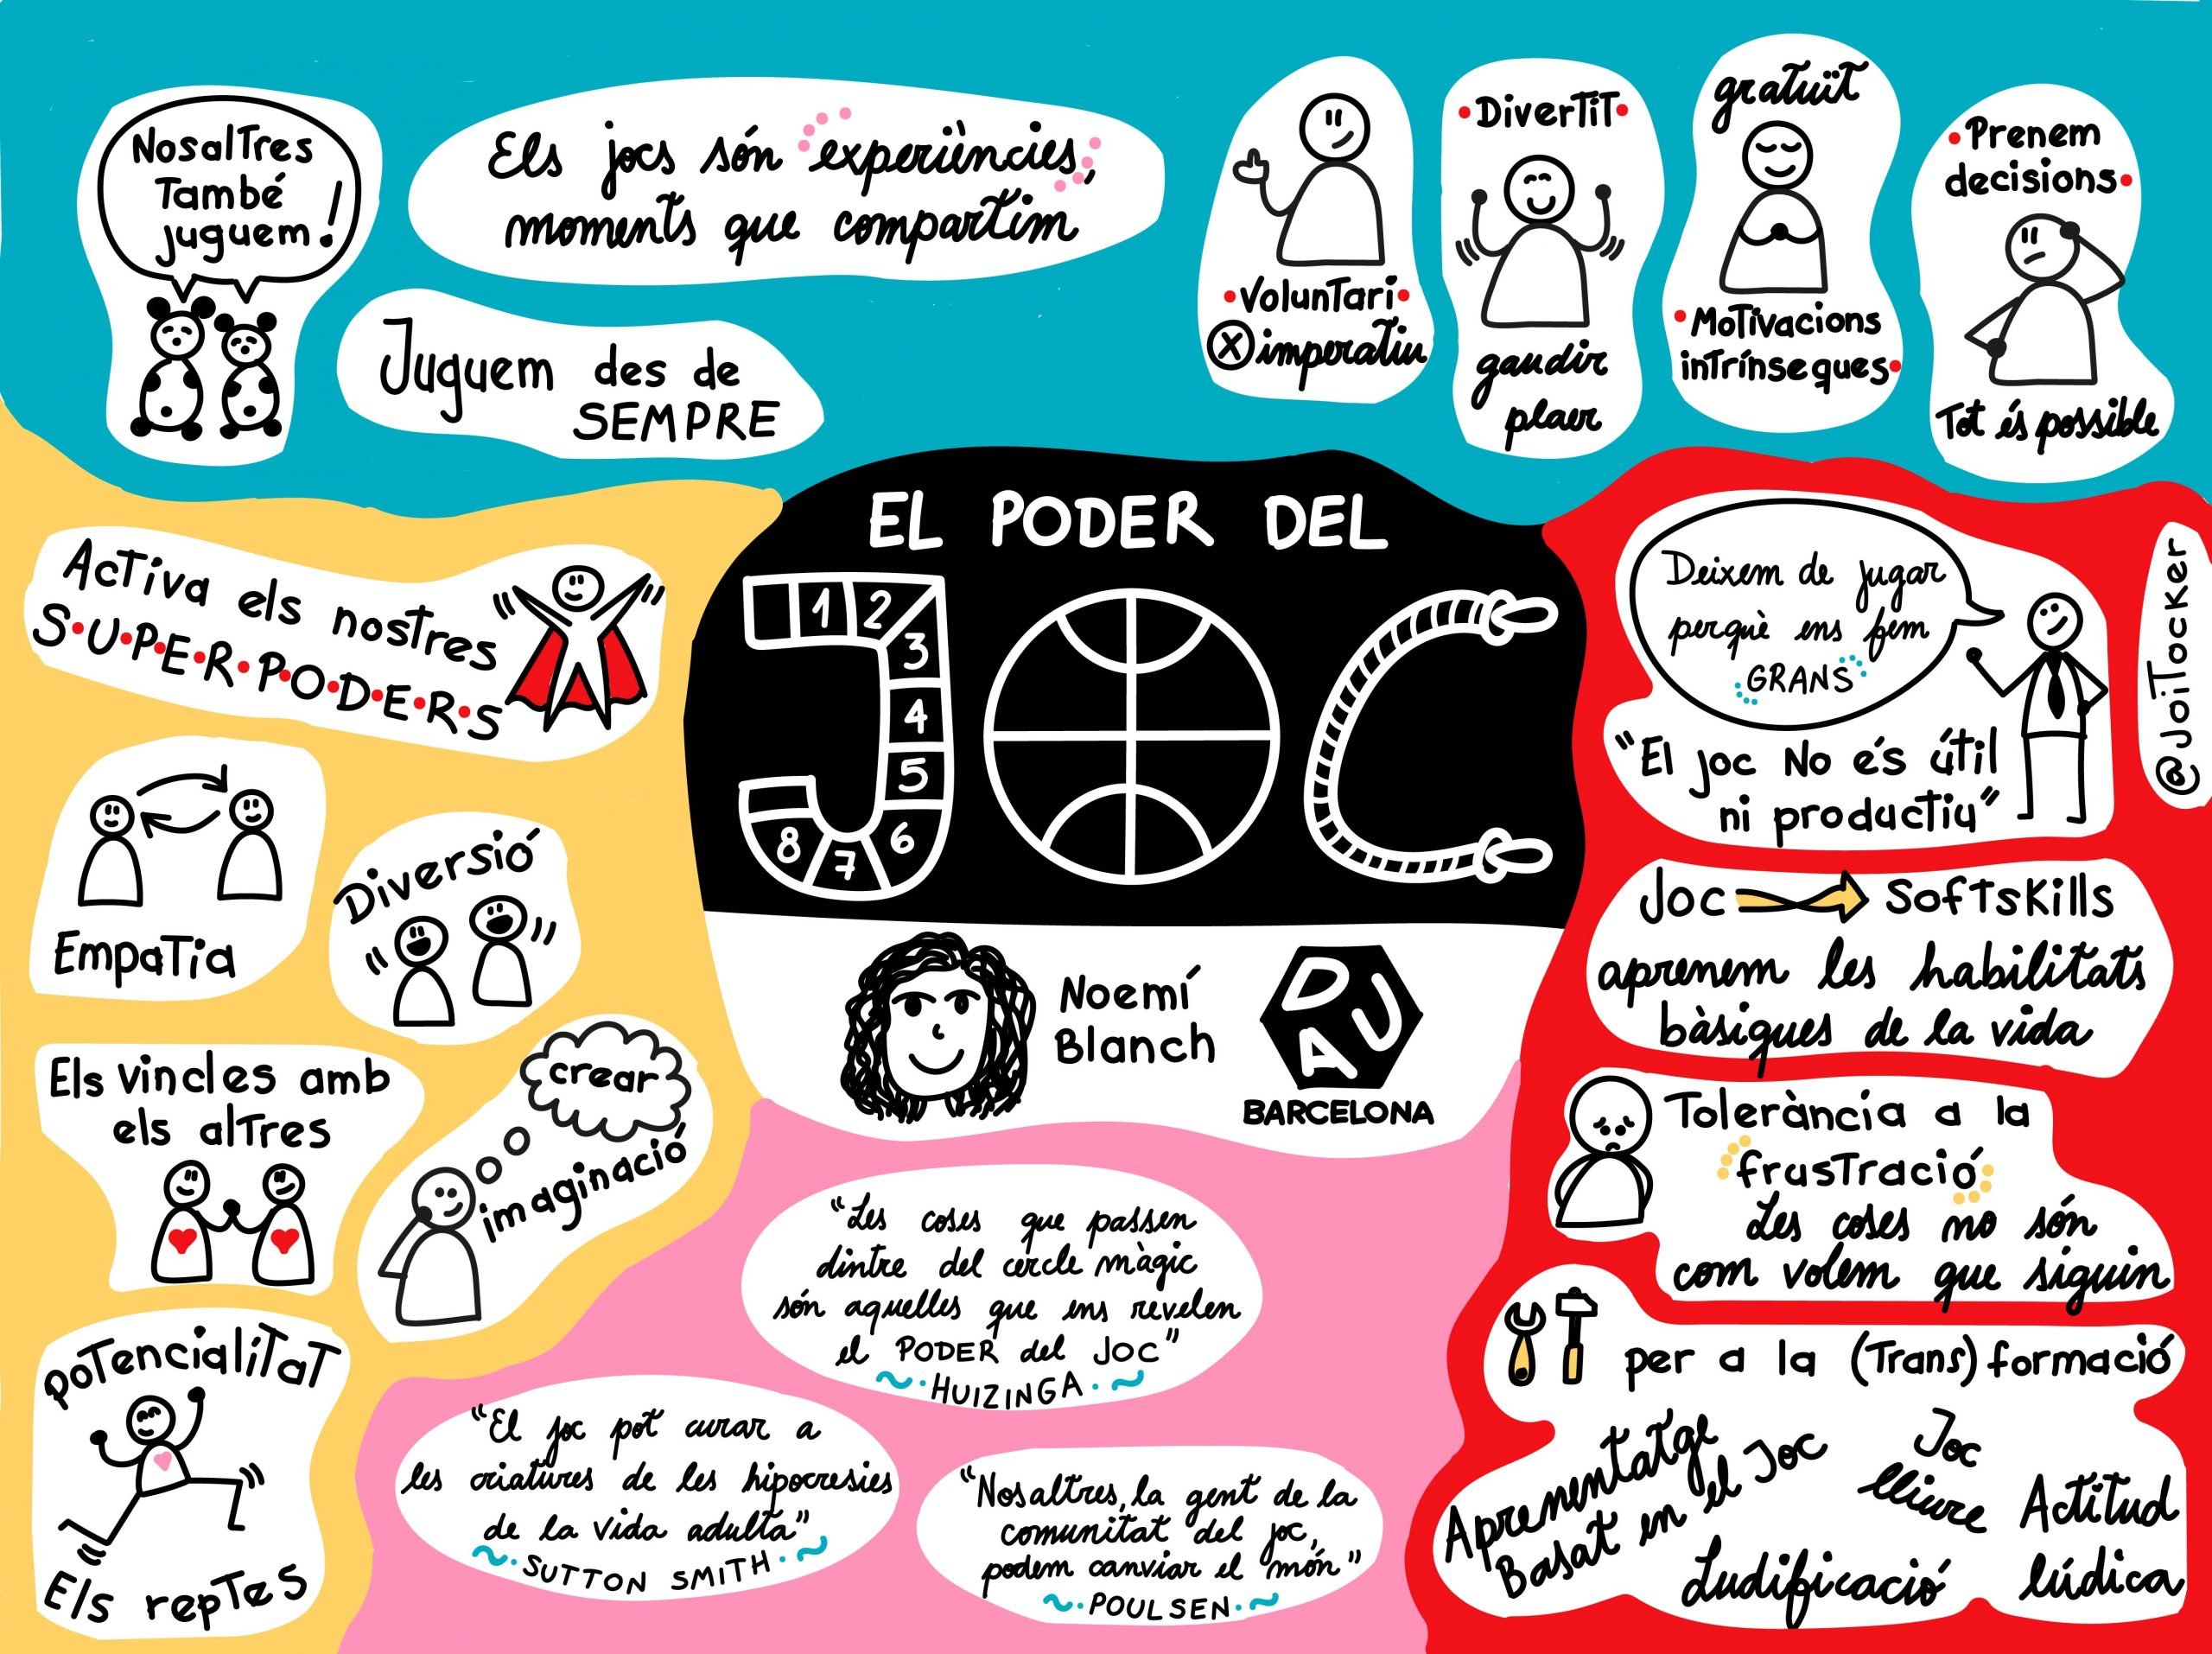 Nosaltres
També
juguem!
Els jocs són experiències,
moments que compartim
Juguem des de
SEMPRE
•Voluntari•
X imperatiu
•Divertit•
gaudir
plaer
gratuït
•Motivacions
intrínseques•
•Prenem
decisions•
Tot és possible
EL PODER DEL
JOC
1
2
3
4
5
6
7
8
Noemí
Blanch
DAU
BARCELONA
Activa els nostres
S•U•P•E•R•P•O•D•E•R•S
Empatia
Diversió
Els vincles amb
els altres
crear
imaginació
potencialitat
Els reptes
"Les coses que passen
dintre del cercle màgic
són aquelles que ens revelen
el PODER del JOC"
~•HUIZINGA•~
"El joc pot curar a
les criatures de les hipocresies
de la vida adulta"
~•SUTTON SMITH•~
"Nosaltres, la gent de la
comunitat del joc,
podem canviar el món"
~•POULSEN•~
Deixem de jugar
perquè ens fem
GRANS
"El joc No és útil
ni productiu"
@JoiTocker
Joc → Softskills
aprenem les habilitats
bàsiques de la vida
Tolerància a la
frustració
Les coses no són
com volem que siguin
per a la (Trans)formació
Aprenentatge
Basat en el Joc
Joc
lliure
Actitud
lúdica
Ludificació